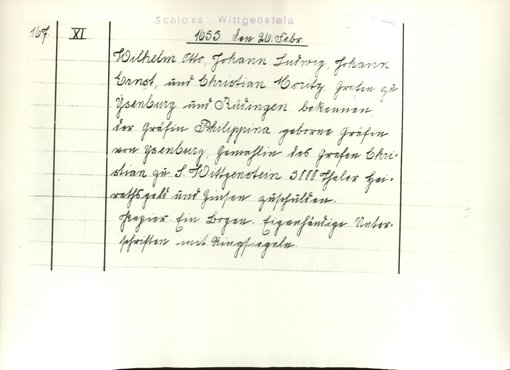 Schloss Wittgenstein
167. XI 1653 den 26. Febr.
Wilhelm Otto, Johann Ludwig, Johann
Ernst, und Christian Moritz Grafen zu
Ysenburg und Büdingen bekennen
der Gräfin Philippina geborne Gräfin
von Ysenburg, Gemahlin des Grafen Chri-
stian zu S. Wittgenstein 3000 Thaler Hei-
rathsgeld und Zinsen zuschulden.
Papier Ein Bogen. Eigenhändige Unter-
schriften mit Ringsiegeln.